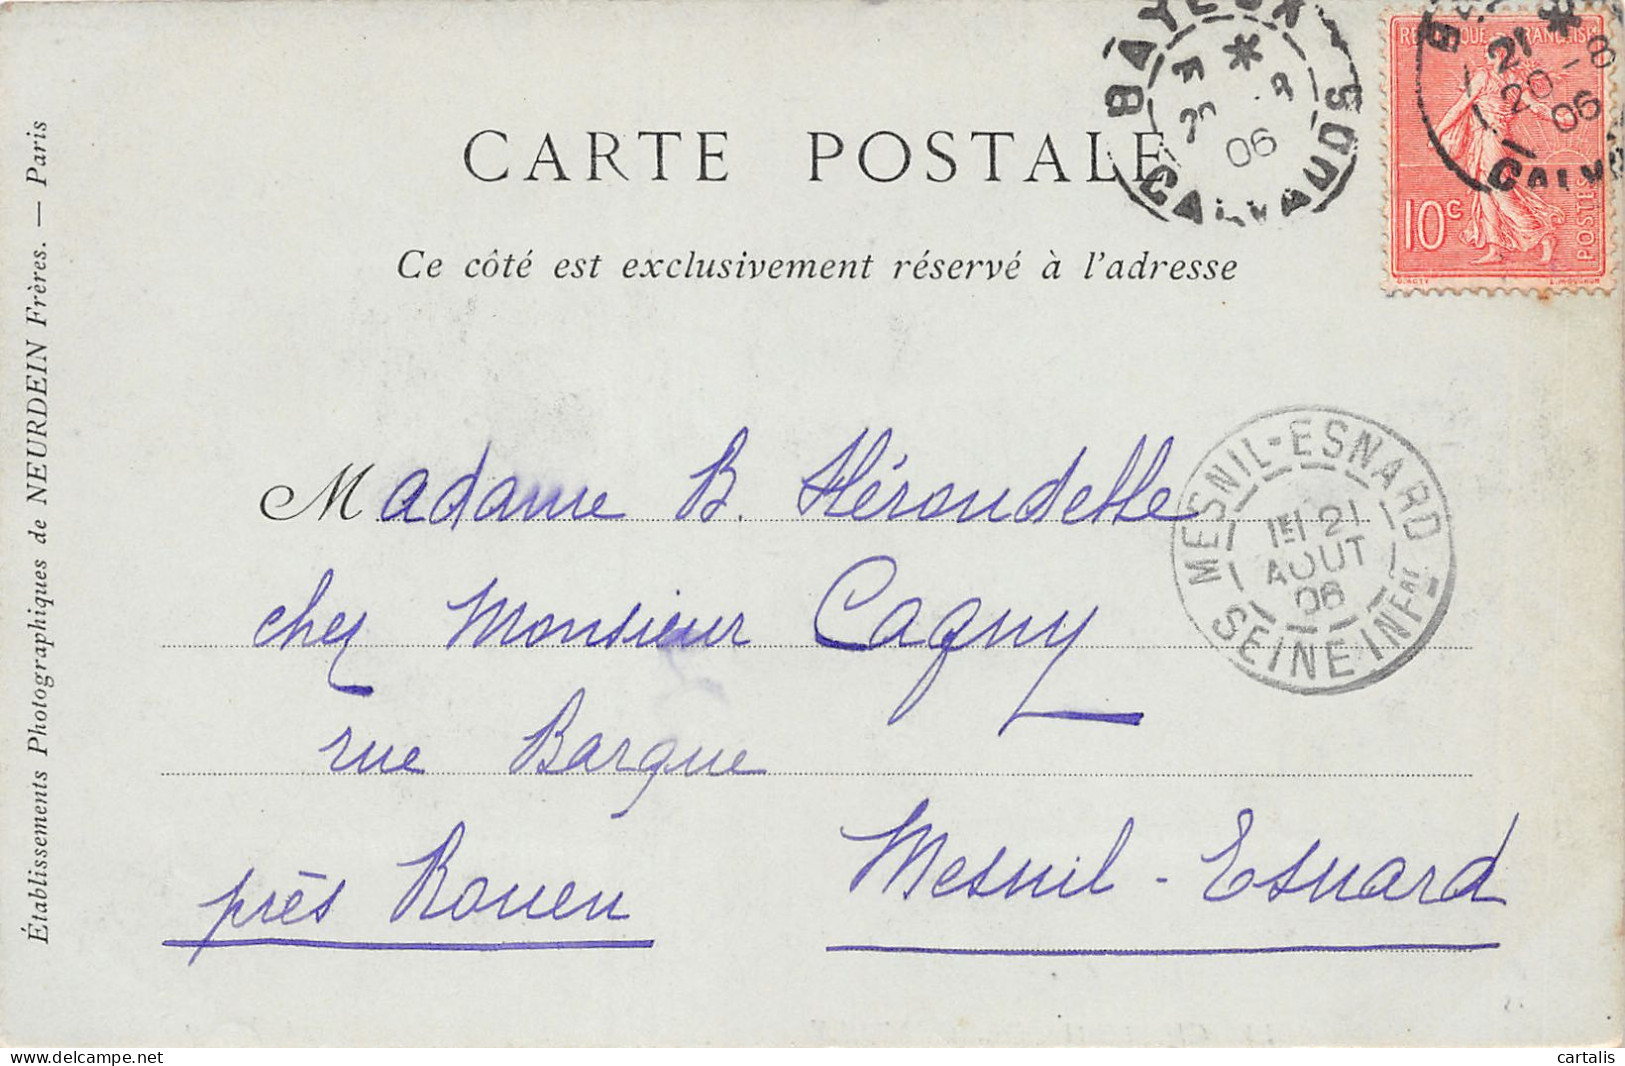 CARTE POSTALE
Ce côté est exclusivement réservé à l'adresse
Établissements Photographiques de NEURDEIN Frères. — Paris
BAYEUX
* 
20 -8
06
CALVADOS
RÉPUBLIQUE FRANÇAISE
10c
POSTES
21 *
20 -8
06
Madame B. Hérondelle
chez Monsieur Cagny
rue Barque
près Rouen
Mesnil-Esnard
MESNIL-ESNARD
1E 21
AOUT
06
SEINE INFRE
cartalis